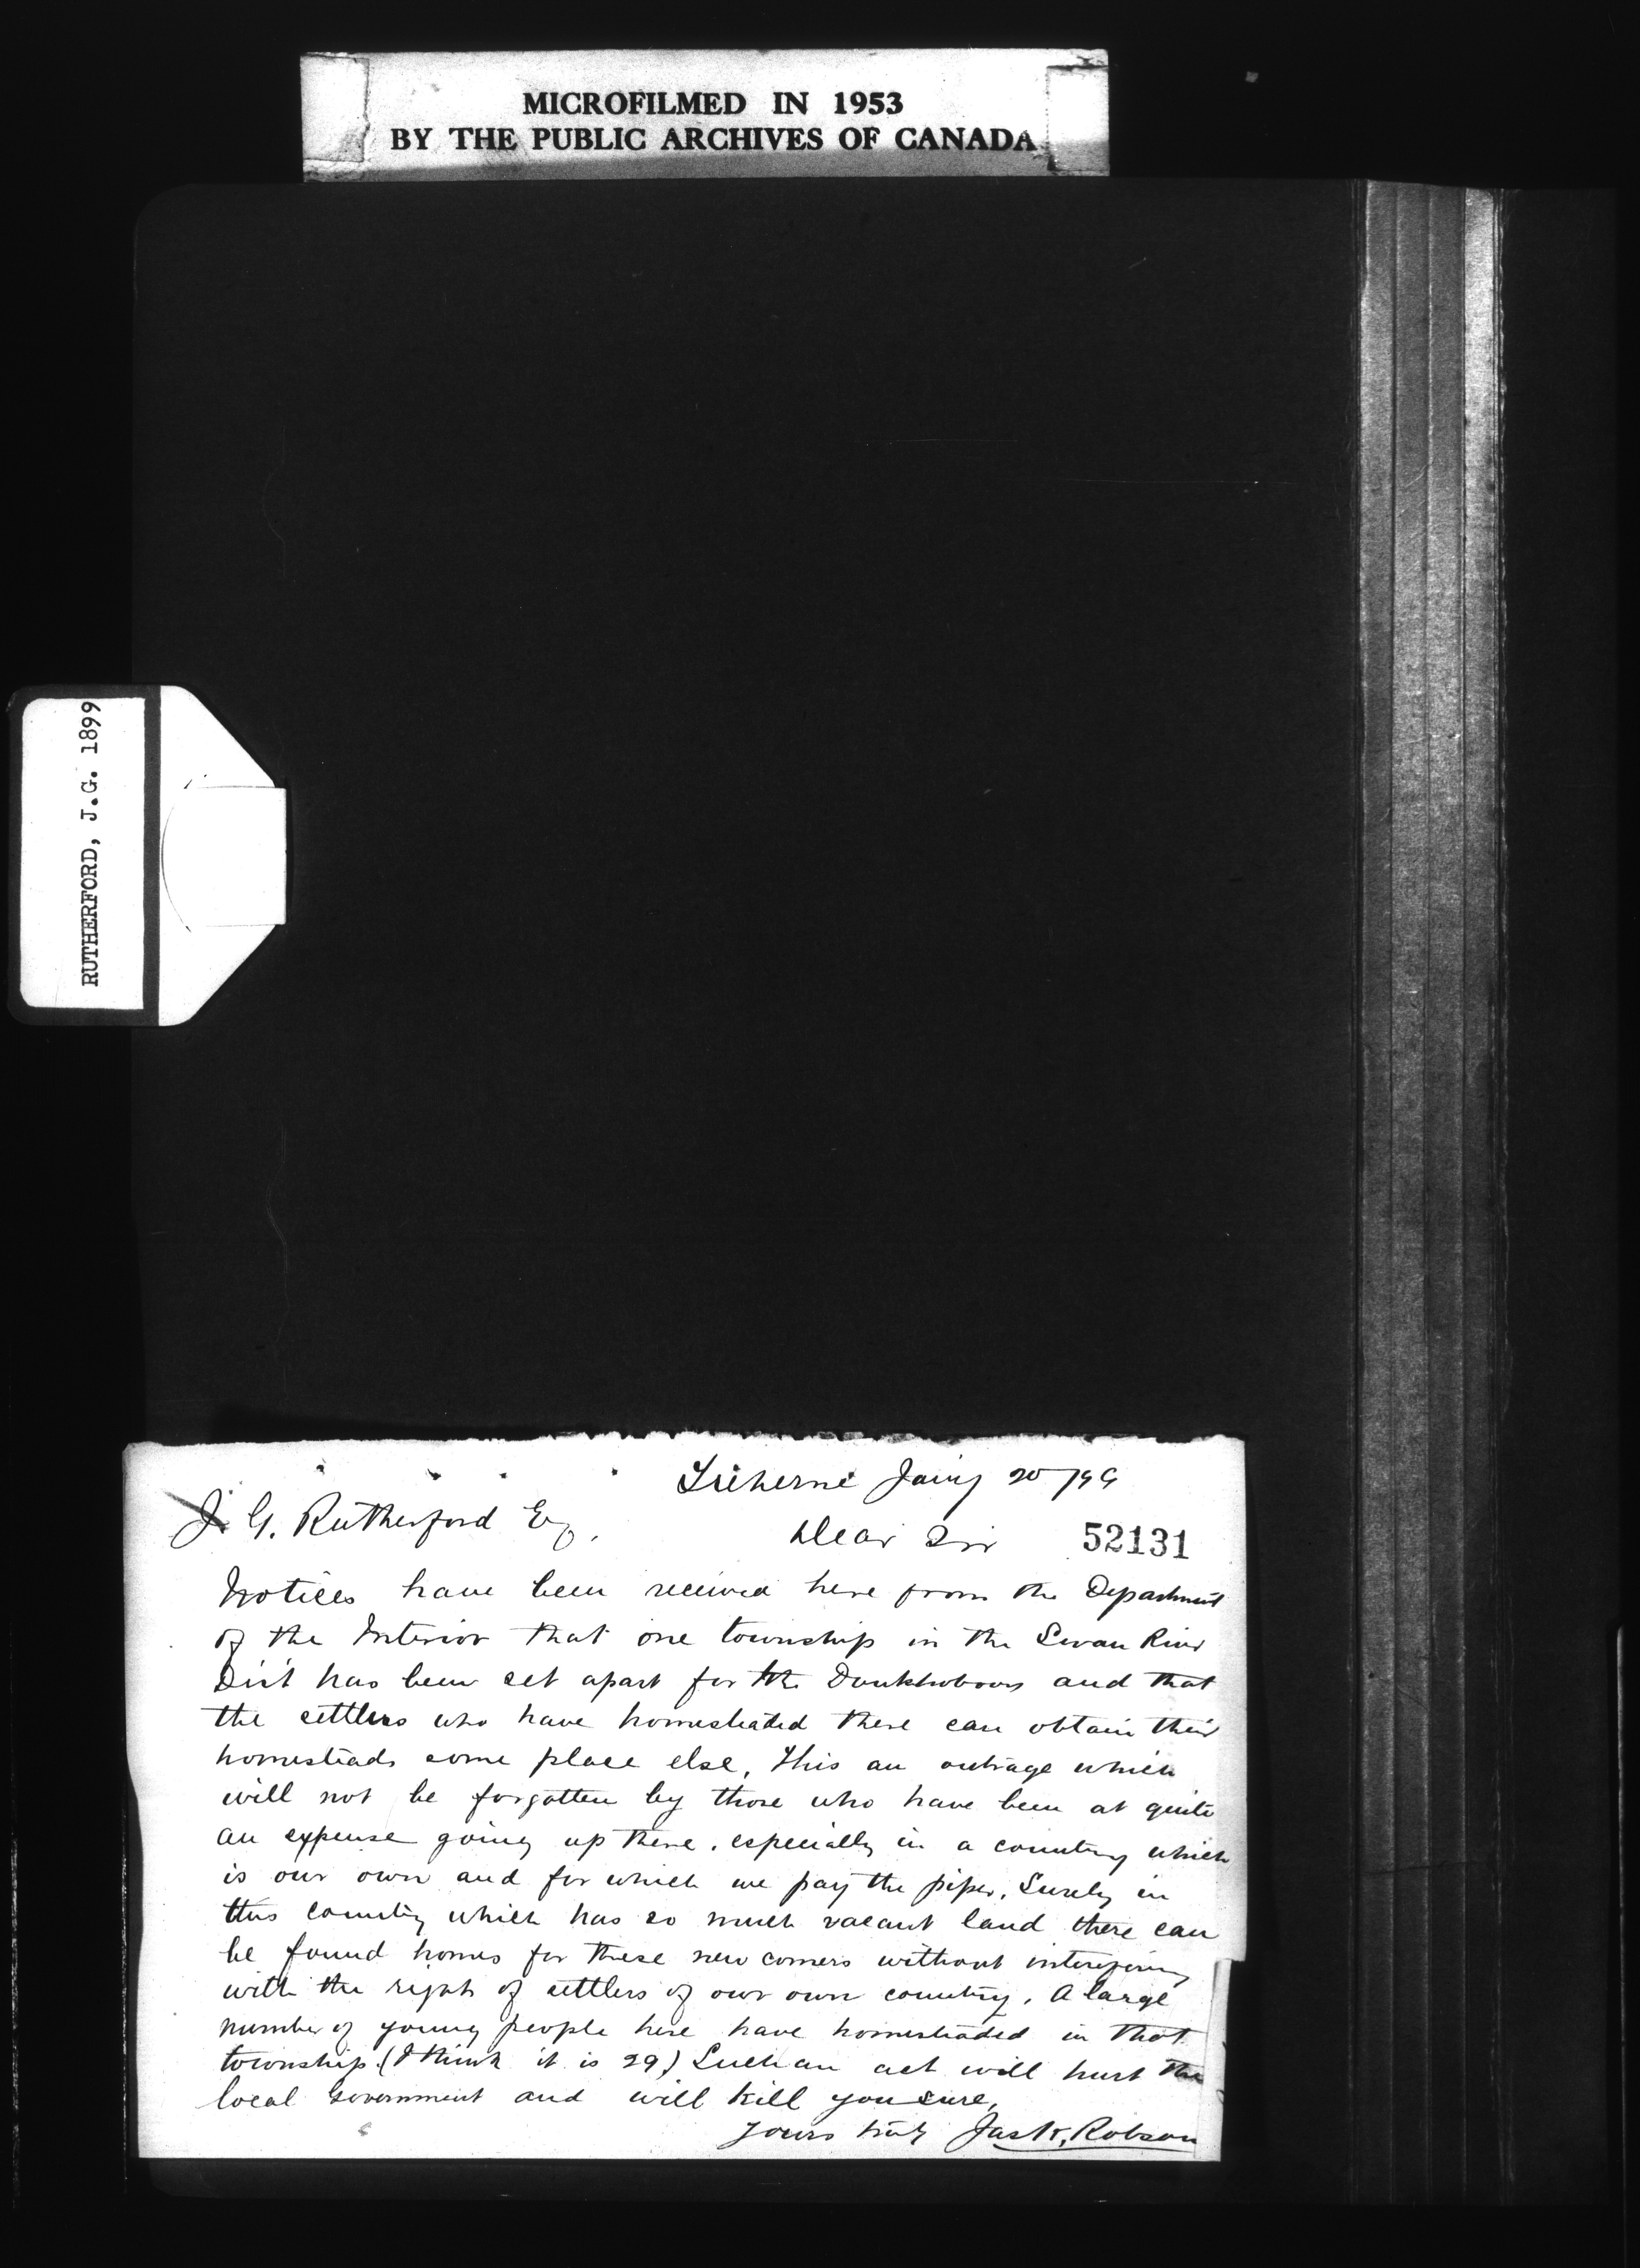 MICROFILMED IN 1953
BY THE PUBLIC ARCHIVES OF CANADA
RUTHERFORD, J.G. 1899
Treherne Jany 20/99
J. G. Rutherford Esq.
Dear Sir 52131
Notices have been received here from the Department
of the Interior that one township in the Swan River
Dist has been set apart for the Doukhobours and that
the settlers who have homesteaded there can obtain their
homesteads some place else. This an outrage which
will not be forgotten by those who have been at quite
an expense going up there, especially in a country which
is our own and for which we pay the piper. Surely in
this country which has so much vacant land there can
be found homes for these new comers without interefering
with the rights of settlers of our own country. A large
number of young people here have homesteaded in that
township. (I think it is 29) Such an act will hurt the
local Government and will kill you sure.
Yours truly Jas K. Robson